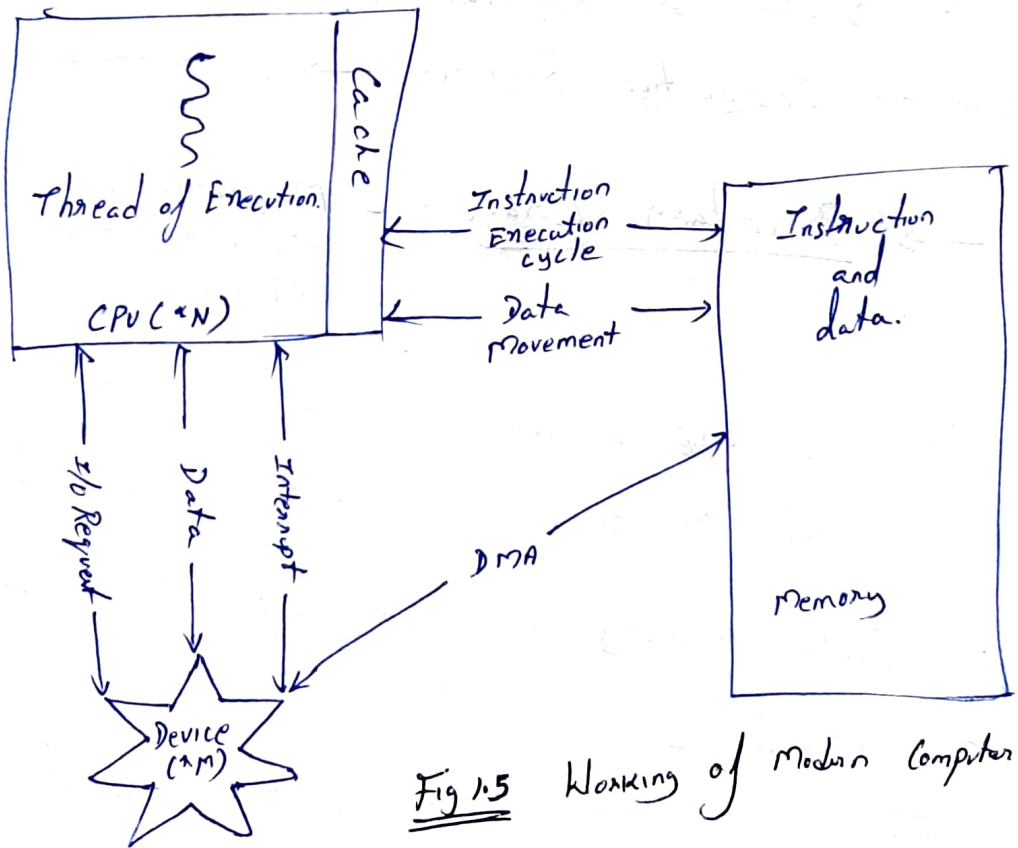 Cache
Thread of Execution.
CPU (*N)
Instruction
Execution
cycle
Data
Movement
Instruction
and
data.
Memory
I/O Request
Data
Interrupt
DMA
Device
(*M)
Fig 1.5 Working of Modern Computer